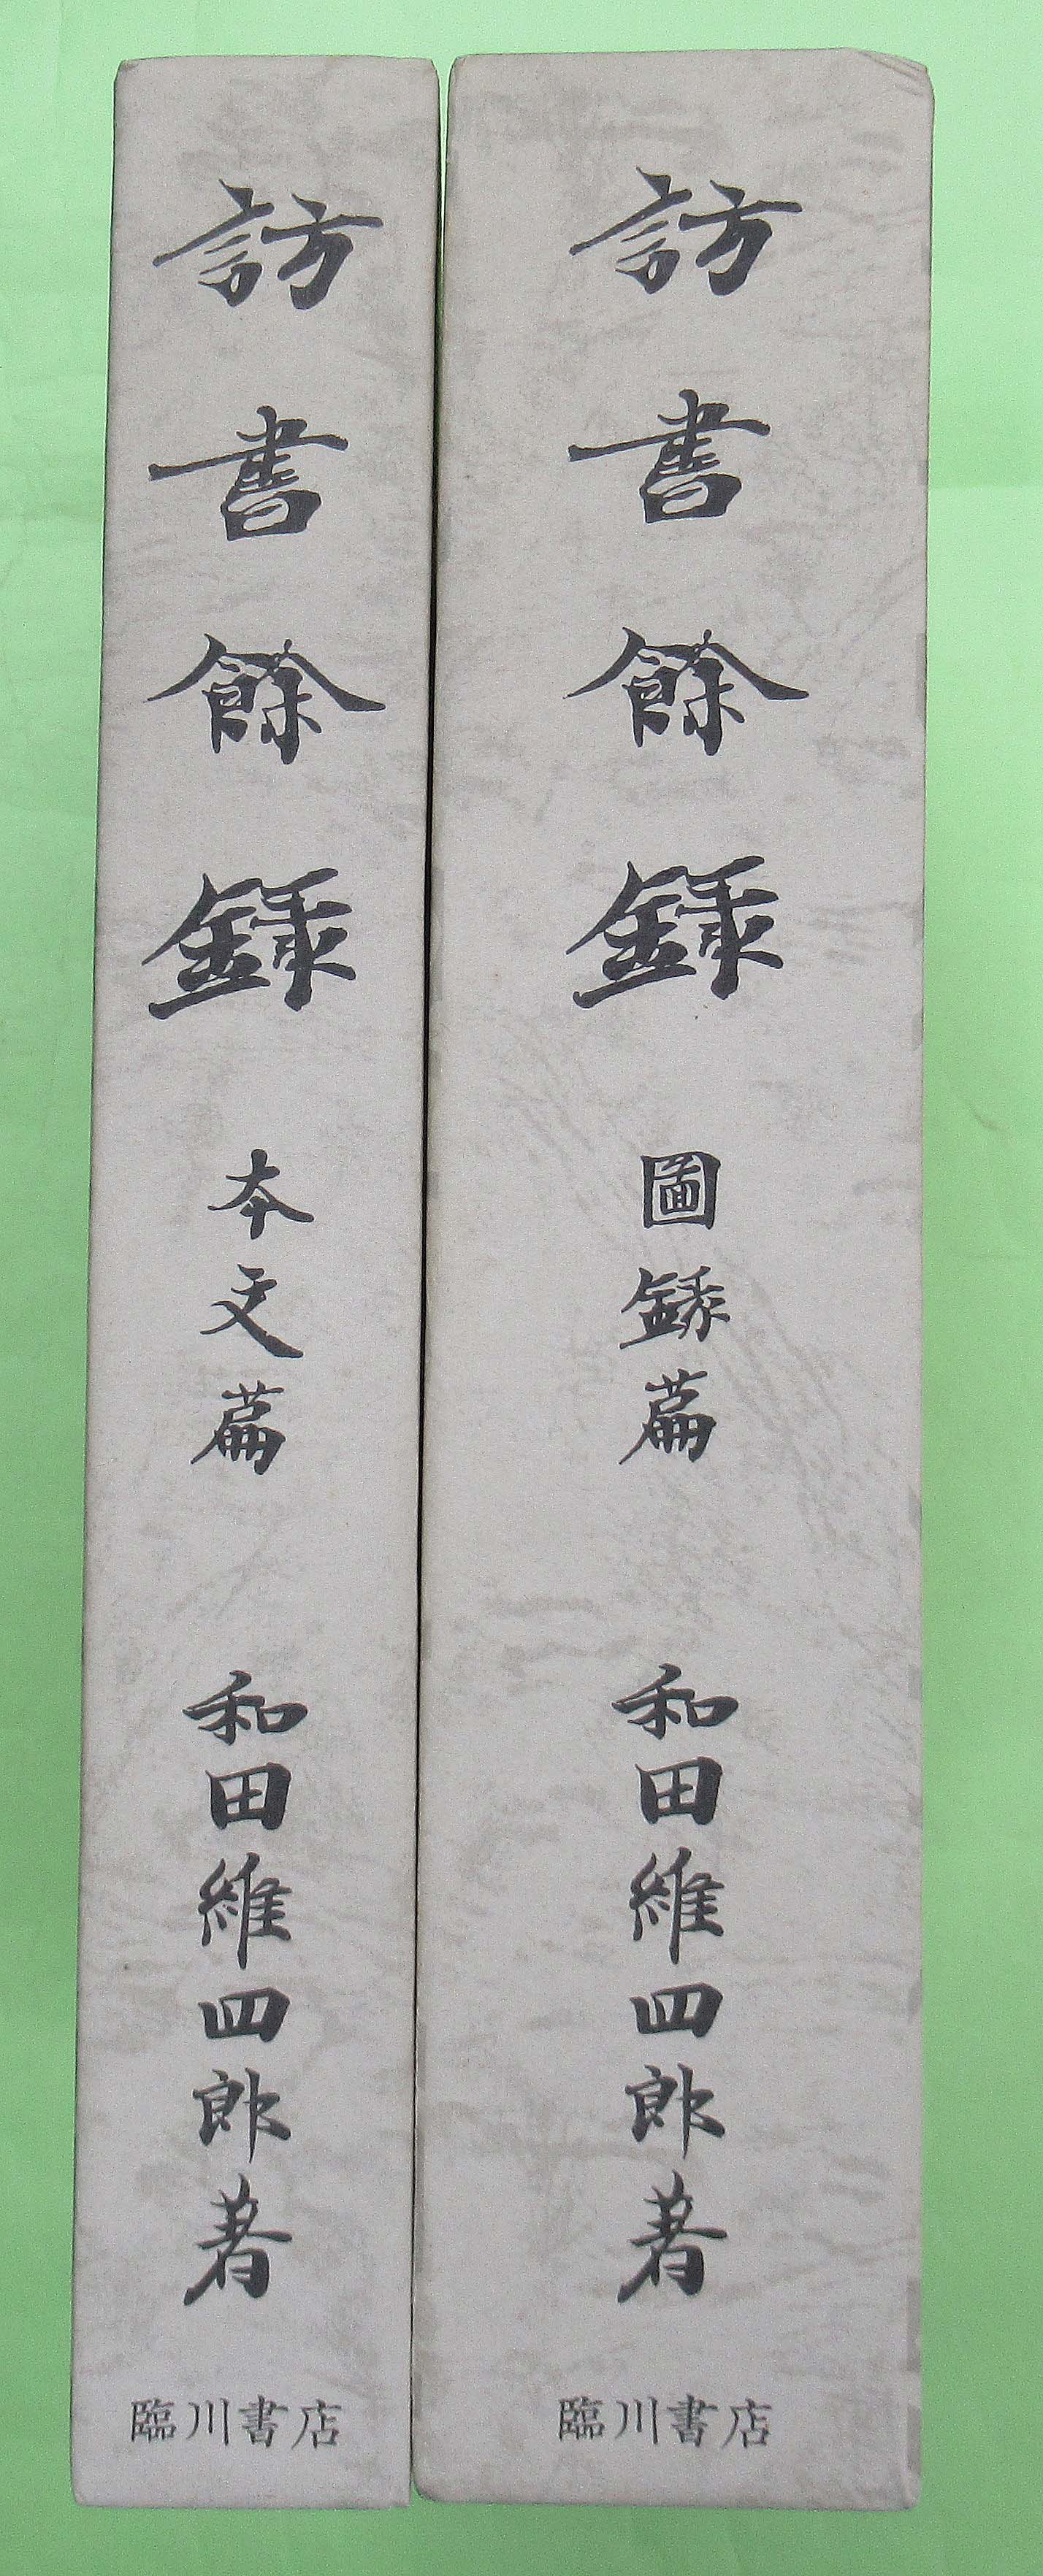 訪書餘録
圖録篇
和田維四郎著
臨川書店
訪書餘録
本文篇
和田維四郎著
臨川書店